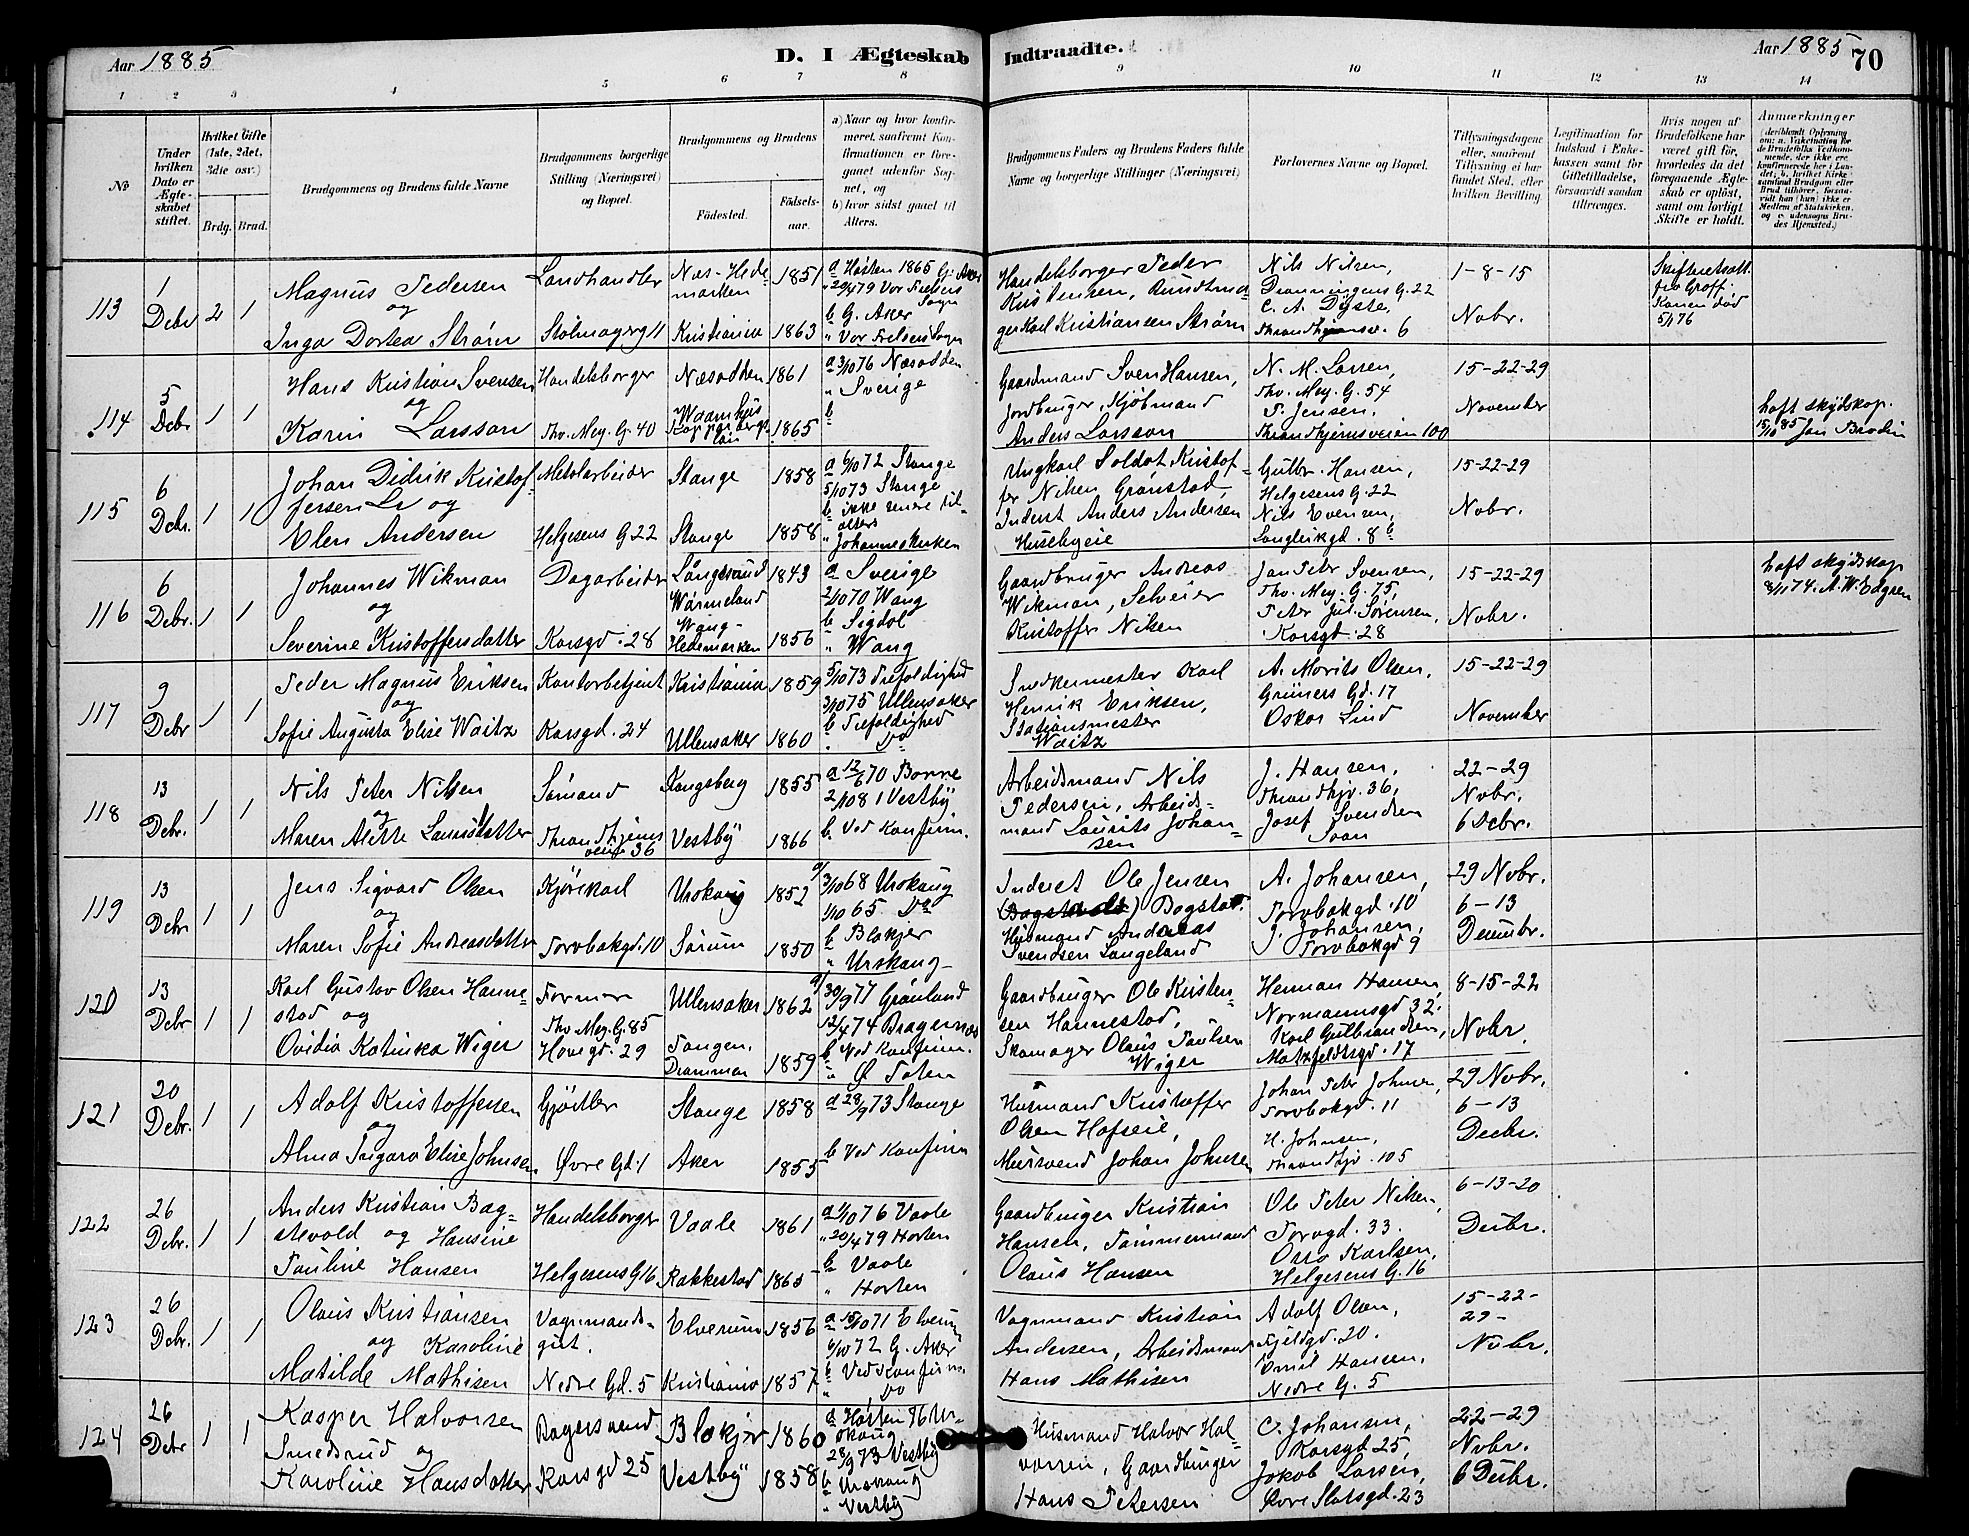 Aar 1885
D. I Ægteskab Indtraadte.
Aar 1885 70
1 2 3 4 5 6 7 8 9 10 11 12 13 14
No
Under hvilken Dato er Ægteskabet stiftet.
Hvilket Gifte (1ste, 2det, 3die osv.)
Brdg. Brud.
Brudgommens og Brudens fulde Navne
Brudgommens borgerlige Stilling (Næringsvei) og Bopæl.
Brudgommens og Brudens
Födested.
Födsels-aar.
a) Naar og hvor konfirmeret, saafremt Konfirmationen er foregaaet udenfor Sognet, og
b) hvor sidst gaaet til Alters.
Brudgommens Faders og Brudens Faders fulde Navne og borgerlige Stillinger (Næringsvei)
Forlovernes Navne og Bopæl.
Tillysningsdagene eller, saafremt Tillysning ei har fundet Sted, efter hvilken Bevilling.
Legitimation for Indskud i Enkekassen samt for Giftetilladelse, forsaavidt saadan tiltrænges.
Hvis nogen af Brudefolkene har været gift för, hvorledes da det foregaaende Ægteskab er oplöst, samt om lovligt Skifte er holdt.
Anmærkninger
113 1 Debr 2 1
Magnus Pedersen
og
Inga Dortea Strøm
Landhandler
Stolmagerg 11
Næs-Hedemarken 1851
Kristiania 1863
a Høsten 1865 G. Aker
" 20/4 79 Vor Frelsers Sogn
b G. Aker
" Vor Frelsers Sogn
Handelsborger Peder
Kristensen,
Karl Kristiansen Strøm
Nils Nilsen,
Dronningens G. 22
C. A. Dyste,
Throndhjemsv. 6
1-8-15
Nobr.
Skifteretsatt.
fra Groff.
Konen død
5/1 76
114 5 Debr 1 1
Hans Kristian Svensen
og
Karin Larsson
Handelsborger
Thv. Mey. G. 40
Næsodden 1861
Kopparbergs län 1865
a 3/10 76 Næsodden
" Sverige
b
Gaardmand Sven Hansen,
Jordbruger, Kjøbmand
Anders Larsson
N. M. Larsen,
Thv. Mey. G. 54
P. Jensen.
Throndhjemsveien 100
15-22-29
November
haft skydskop.
15/10 85 Jan Brodin
115 6 Debr. 1 1
Johan Didrik Kristoffersen og
Elen Andersen
Metalarbeider
Helgesens G 22
Stange 1858
Stange 1858
a 6/10 72 Stange
5/10 73 Stange
b ikke senere til-
alters
" Johanneskirken
Ungkarl Soldat Kristof-
fer Nilsen Grønstad,
Inderst Anders Andersen
Husebyeie
Gulbr. Hansen,
Helgesens G. 22
Nils Evensen,
Langleikgd. 8 b
15-22-29
Nobr.
116 6 Debr. 1 1
Johannes Wikman
og
Severine Kristoffersdatter
Dagarbeider
Korsgd. 28
Långserud Wärmeland 1843
Wang-Hedemarken 1856
a Sverige
2/10 70 Wang
b Sigdal
" Wang
Gaardbruger Andreas
Wikman, Selveier
Kristoffer Nilsen
Jan Peter Svensen,
Thv. Mey. G. 75,
Peter Jul. Sørensen,
Korsgd. 28
15-22-29
Nobr.
haft skydskop
A. W. Edgren
117 9 Debr 1 1
Peder Magnus Eriksen
og
Sofie Augusta Elise Waitz
Kontorbetjent
Korsgd. 24
Kristiania 1859
Ullensaker 1860
5/10 73 Trefoldighed
3/10 75 Ullensaker
b Trefoldighed
" Do
Snedkermester Karl
Henrik Eriksen,
Stationsmester
Waitz
A. Morits Olsen,
Grüners Gd. 17
Oskar Lind
15-22-29
November
118 13 Debr. 1 1
Nils Peter Nilsen
og
Maren Alette Lauritsdatter
Sømand
Throndhjems veien 36
Kongsberg 1855
Vestby 1866
a 12/6 70 Borre
2/10 81 Vestby
b. Ved Konfirm.
Arbeidsmand Nils
Pedersen, Arbeids-
mand Laurits Johan-
sen
J. Hansen,
Throndhjv. 36,
Josef Svendsen
Svan
22-29
Nobr.
6 Debr.
119 13 Debr 1 1
Jens Sigvard Olsen
og
Maren Sofie Andreasdatter
Kjørekarl
Torvbakgd. 10
Urskoug 1852
Sørum 1850
a/ 3/10 68 Urskoug
1/10 65 Do
b Blakjer
" Urskoug
Inderst Ole Jensen
Bogstad.
Husmand Andreas
Svendsen Langeland
A. Johansen,
Torvbakgd. 10
J. Johansen,
Torvbakgd 9
29 Nobr.
6-13
Decembr.
120 13 Debr 1 1
Karl Gustav Olsen Hanne-
stad og
Ovidia Katinka Wiger
Former
Thv Mey. G. 85
Hovegd. 29
Ullensaker 1862
Tangen, Drammen 1859
a/ 30/9 77 Grønland
12/4 74 Bragernæs
b Ved Konfirm.
" Ø Toten
Gaardbruger Ole Kristen-
sen Hannestad,
Skomager Olaus Paulsen
Wiger
Herman Hansen,
Normannsgd 32,
Karl Gulbrandsen,
Motzfeldtsgd. 17
8-15-22
Nobr.
121 20 Debr. 1 1
Adolf Kristoffersen
og
Alma Elise Johnsen
Gjørtler
Øvre Gd. 1
Stange 1858
Aker 1855
a 28/9 73 Stange
b Ved Konfirm
Husmand Kristoffer
Olsen Hofseie,
Mursvend Johan Johnsen
Johan Peter Johnsen,
Torvbakgd. 11
H. Johnsen,
Throndhjv. 105
29 Nobr.
6-13
Decbr.
122 26 Debr. 1 1
Anders Kristian Bag-
stevold og Hansine
Pauline Hansen
Handelsborger
Helgesens G 16
Vaale 1861
Rakkestad 1865
a 1/10 76 Vaale
" 20/4 79 Horten
b Vaale
" Horten
Gaardbruger Kristian
Hansen, Tømmermand
Olaus Hansen
Ole Peter Nilsen,
Torvgd. 33.
Otto Karlsen,
Helgesens G. 16
6-13-20
Decbr.
123 26 Debr. 1 1
Olaus Kristiansen
og Karoline
Matilde Mathisen
Vognmands-
gut.
Nedre Gd. 5
Elverum 1856
Kristiania 1857
a 15/10 71 Elverum
6/10 72 G. Aker
b Ved Konfirm.
" Do
Vognmand Kristian
Andersen, Arbeidsmand
Hans Mathisen
Adolf Olsen,
Fjeldgd. 20.
Emil Hansen,
Nedre G. 5
15-22-
29-
Nobr.
124 26 Debr 1 1
Kasper Halvorsen
Smedsrud og
Karoline Hansdatter
Bagersvend
Korsgd 25
Blakjer 1860
Vestby 1858
a Høsten 76 Ur-
skoug
28/9 73 Vestby
b Urskoug
" Vestby
Husmand Halvor Hal-
vorsen, Gaardbruger
Hans Petersen
C. Johansen,
Korsgd 25,
Jakob Larsen,
Øvre Slotsgd. 23
22-29
Nobr.
6 Decbr.